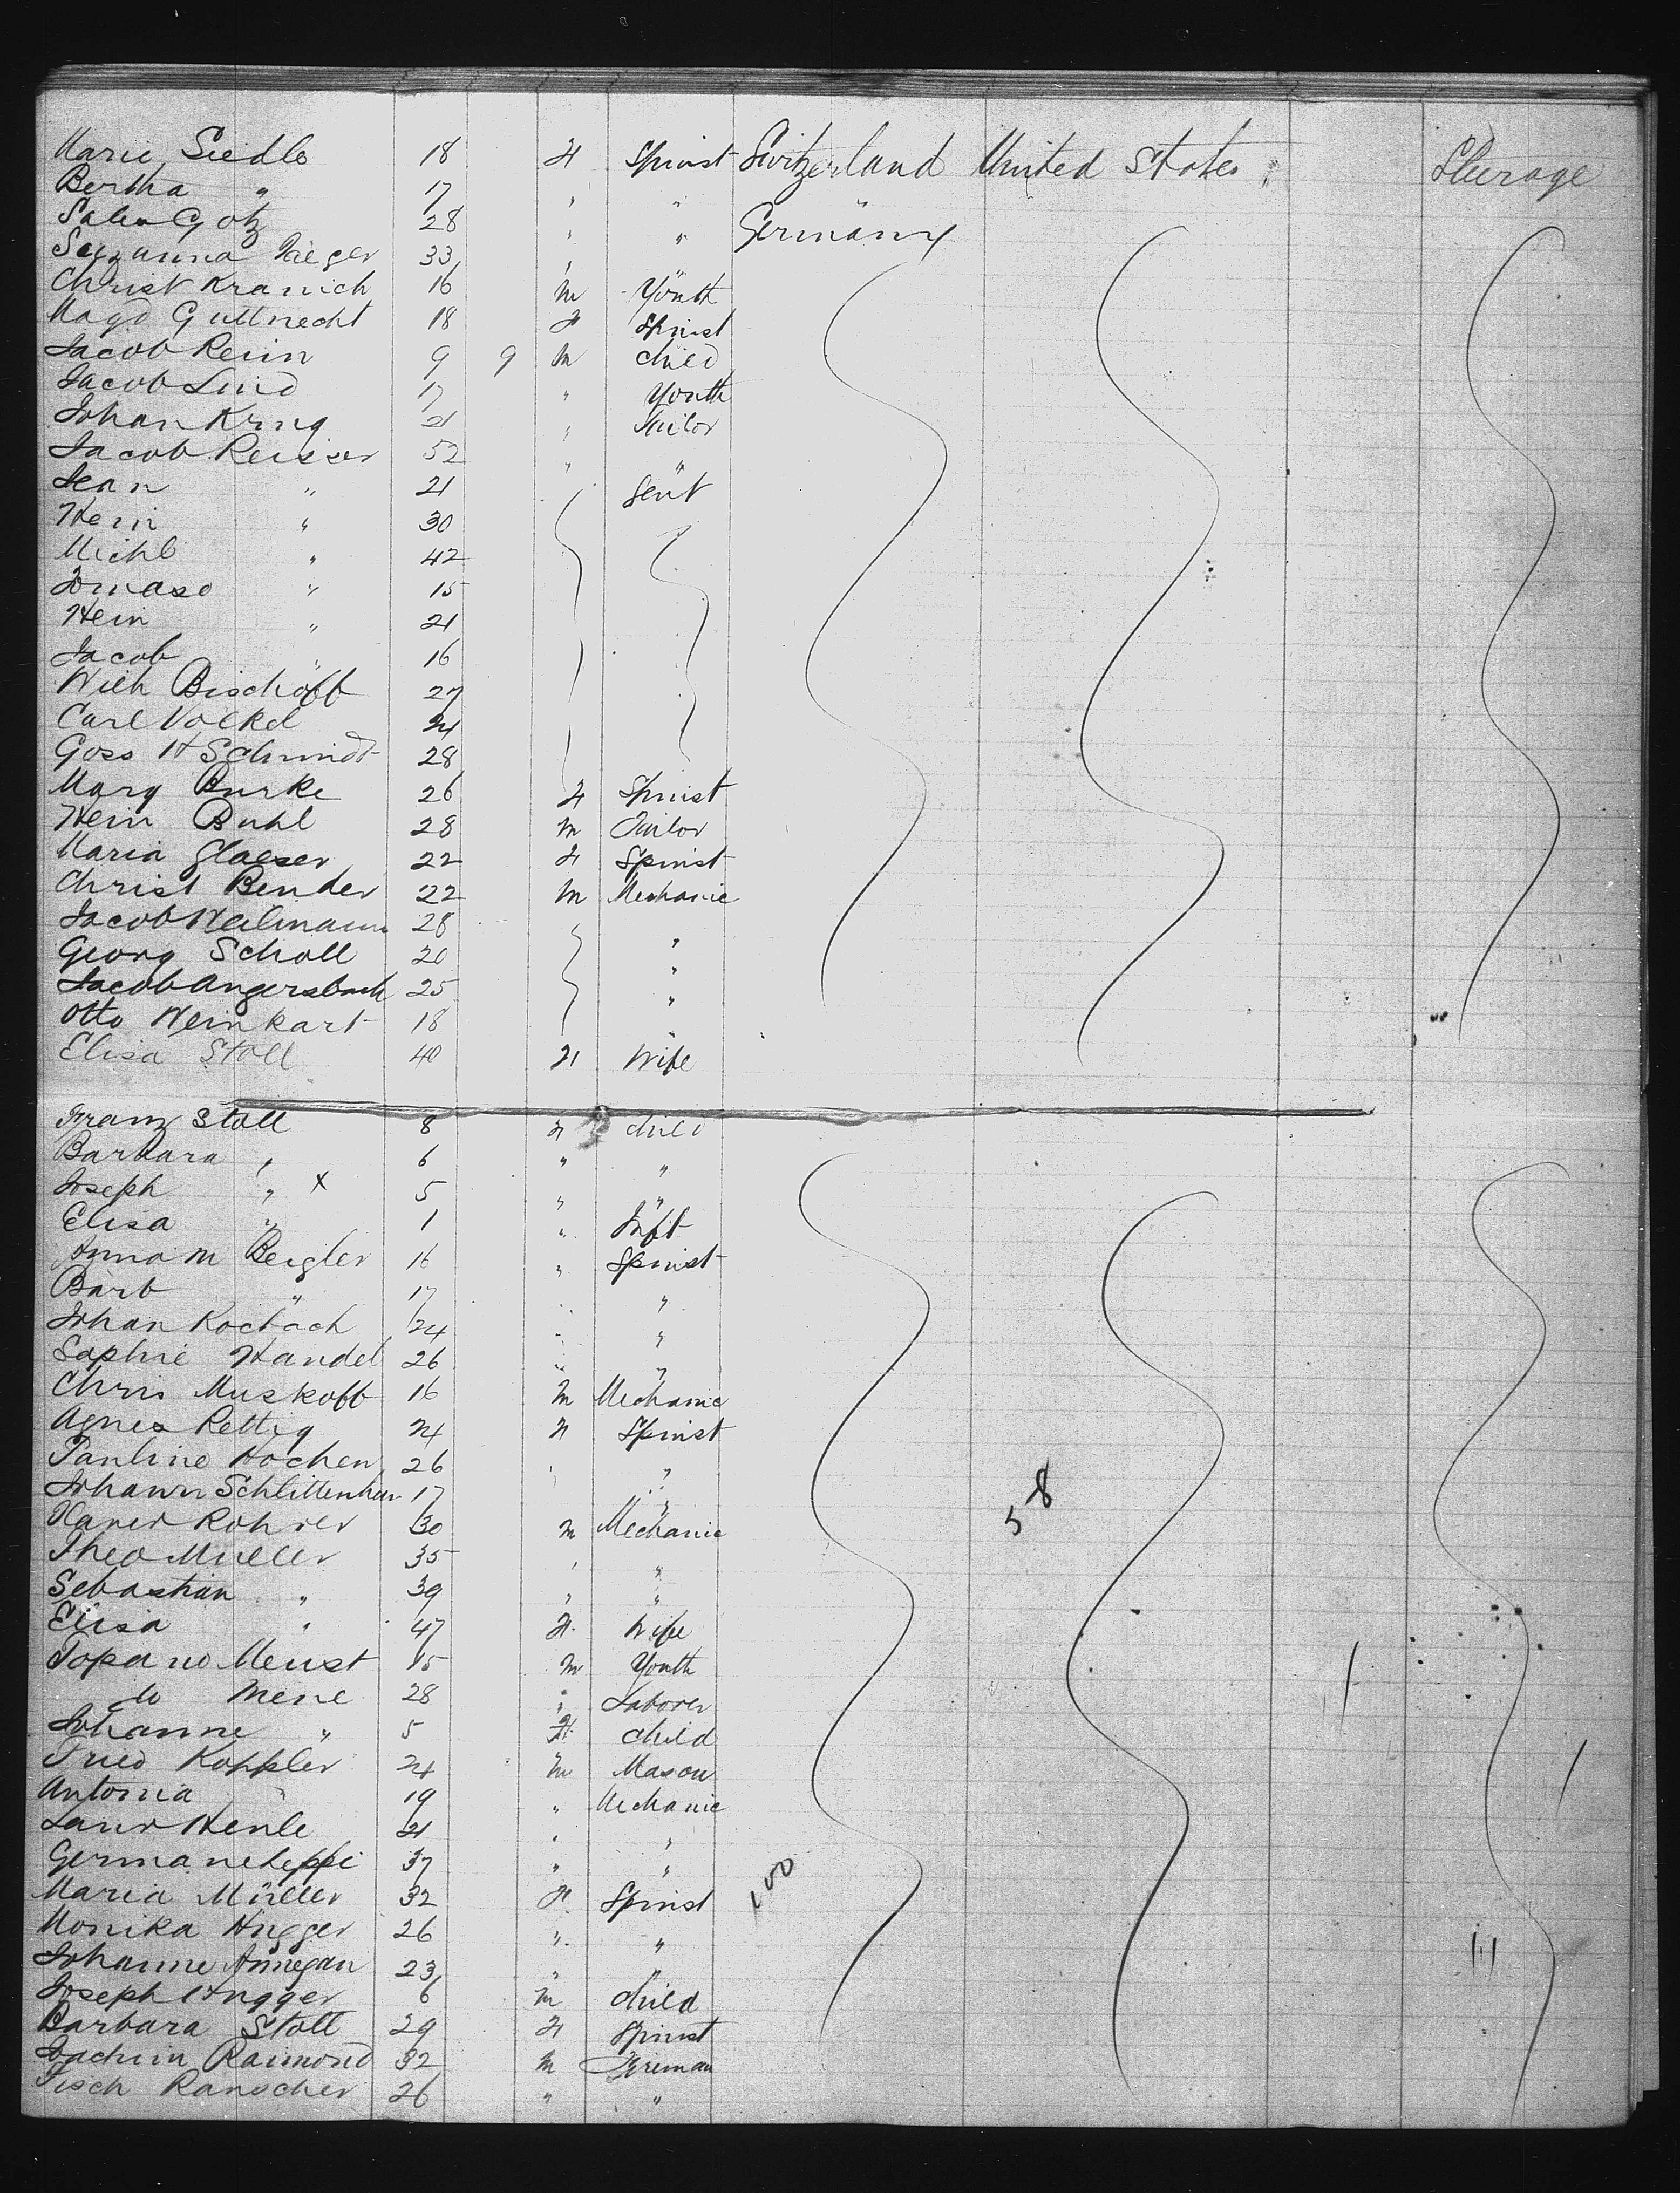 Marie Siedle 18 H Spinst Switzerland United States Steerage
Bertha " 17 " "
Salea Gotz 28 " " Germany
Suzanna Jaeger 33 "
Christ Kranich 16 m Youth
Magd Guttnecht 18 H Spinst
Jacob Reiin 9 9 m child
Jacob Lind 17 " Youth
Johan Krug 21 " Tailor
Jacob Reisser 52 " "
Jean " 21 Gent
Hein " 30
Michl " 42
Tomaso " 15
Hein " 21
Jacob " 16
Wilh Bischoff 27
Carl Volkel 24
Goss H Schmidt 28
Mary Burke 26 H Spinst
Hein Buhl 28 m Tailor
Maria Glaeser 22 H Spinst
Christ Bender 22 m Mechanic
Jacob Weilmann 28 "
Georg Scholl 20 "
Jacob Angersbach 25 "
Otto Weinkart 18 "
Elisa Stoll 40 H Wife
Franz Stoll 8 H child
Barbara " 6 " "
Joseph " x 5 " "
Elisa " 1 " Inft
Anna M Beigler 16 " Spinst
Barb " 17 " "
Johan Kochach 24 " "
Sophie Handel 26 " "
Chris Muskoff 16 m Mechanic
Agnes Rettig 24 H Spinst
Pauline Hochen 26 " "
Johann Schlittenhar 17 "
Xaver Rohrer 30 m Mechanic
Theo Muller 35 " "
Sebastian " 39 " "
Elisa " 47 H Wife
Topano Meust 15 m Youth
do Mene 28 " Laborer
Johanne " 5 H child
Fried Koppler 24 m Mason
Antonia " 19 " Mechanic
Laur Henle 21 " "
Germane Leppi 37 " "
Maria Müller 32 H Spinst 100
Monika Hugger 26 " "
Johanne Annegan 23 " "
Joseph Hugger 6 m child
Barbara Stoll 29 H Spinst
Joachim Raimond 32 m Fireman
Fisch Ranscher 26 " "
58